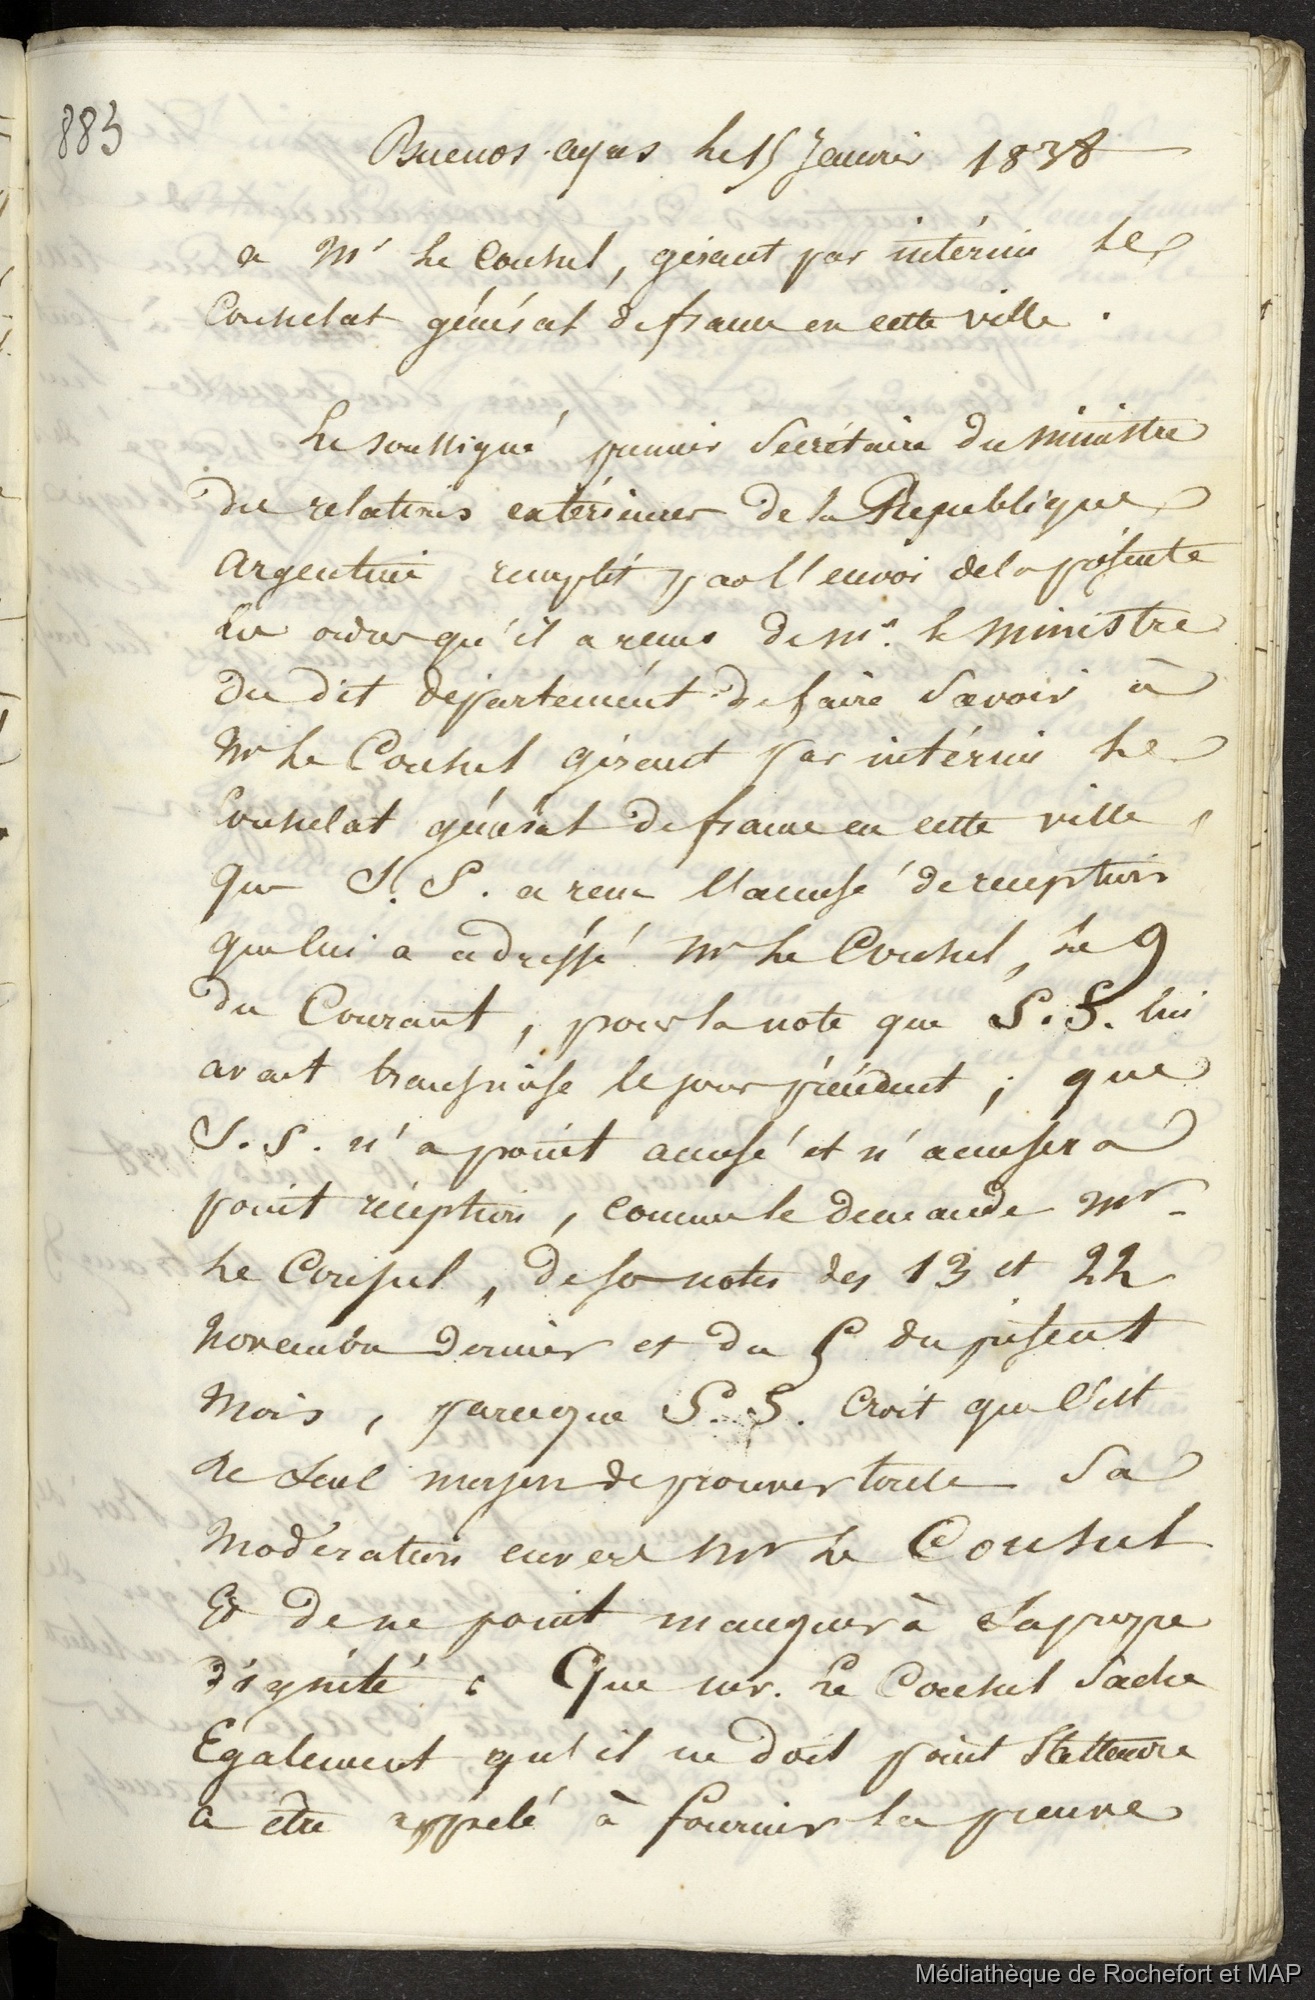 883
Buenos-ayres le 15 Janvier 1838
a Mr Le Consul, gérant par intérim Le
Consulat général de france en cette ville.
Le soussigné premier Secrétaire du Ministre
des relations extérieures de la République
Argentine remplit par l'envoi de la présente
les ordres qu'il a reçus de Mr. le Ministre
du dit département de faire Savoir à
Mr le Consul gérant par intérim Le
Consulat général de france en cette ville,
que S. S. a reçu l'accusé de réception
que lui a adressé Mr Le Consul, Le 9
du Courant, pour la note que S. S. lui
avait transmise le jour précédent; que
S. S. n'a point accusé et n'accusera
point réception, comme le demande Mr
Le Consul, de ses notes des 13 et 22
Novembre dernier et du 5 du présent
Mois, parceque S. S. Croit que C'est
Le Seul moyen de prouver toute Sa
Modération envers Mr Le Consul
Et de ne point manquer à Sa propre
dignité. Que mr. Le Consul Sache
Egalement qu'il ne doit point S'attendre
a être appelé à fournir la preuve
Médiathèque de Rochefort et MAP